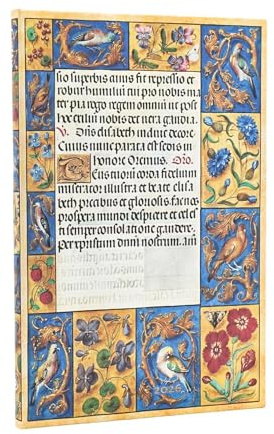 sio superbis cuius fit repressio et
robur humilui cui pro nobis ma
ter pia rego regem omniu ut post
hoc exiliu nobis det uera gaudia.
V. Dns elisabeth induit decore
Cuius nunc parata est sedis in
honore Oremus. Oro.
Tuorum corda fidelium
miserator illustra et beate elisa
beth precibus et gloriosis fac nos
prospera mundi despicere et celes
ti semper consolatione gaudere.
per xpristum dnm nostrum. am
2026